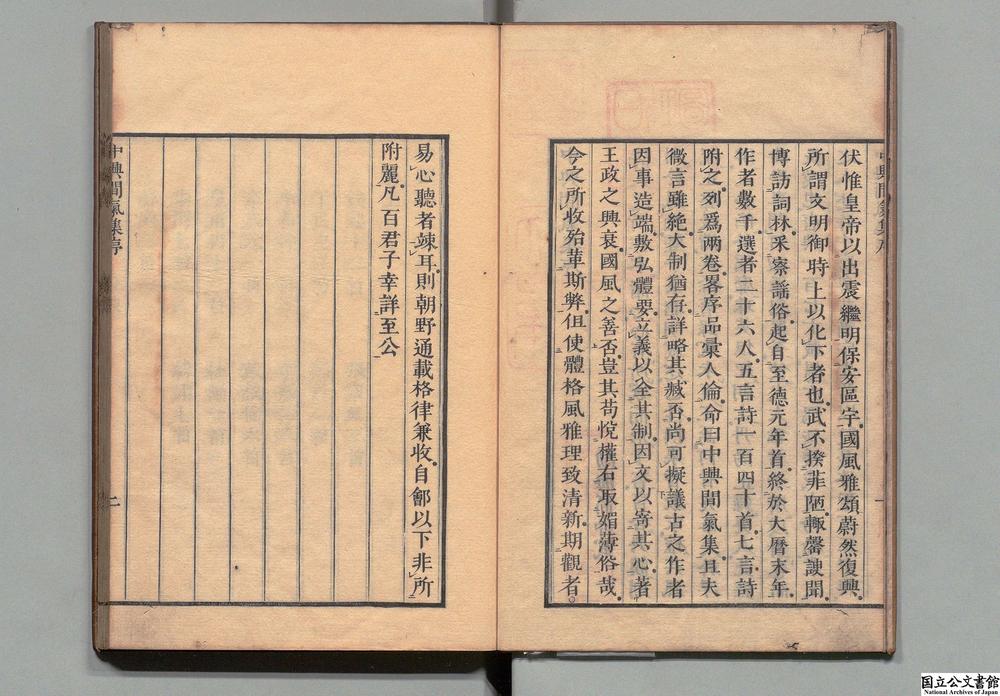 伏惟皇帝以出震繼明保安區宇國風雅頌蔚然復興
所謂文明御時上以化下者也武不揆菲陋輙罄謏聞
博訪詞林采察謡俗起自至德元年首終於大曆末年
作者數千選者二十六人五言詩一百四十首七言詩
附之列爲兩卷畧序品彙人倫命曰中興間氣集且夫
微言雖絶大制猶存詳略其臧否尚可擬議古之作者
因事造端敷弘體要立義以全其制因文以寄其心著
王政之興衰國風之善否豈其苟悅權右取媚薄俗哉
今之所收殆革斯弊但使體格風雅理致清新期觀者
易心聽者竦耳則朝野通載格律兼收自鄶以下非所
附麗凡百君子幸詳至公
中興間氣集序
二
国立公文書館
National Archives of Japan